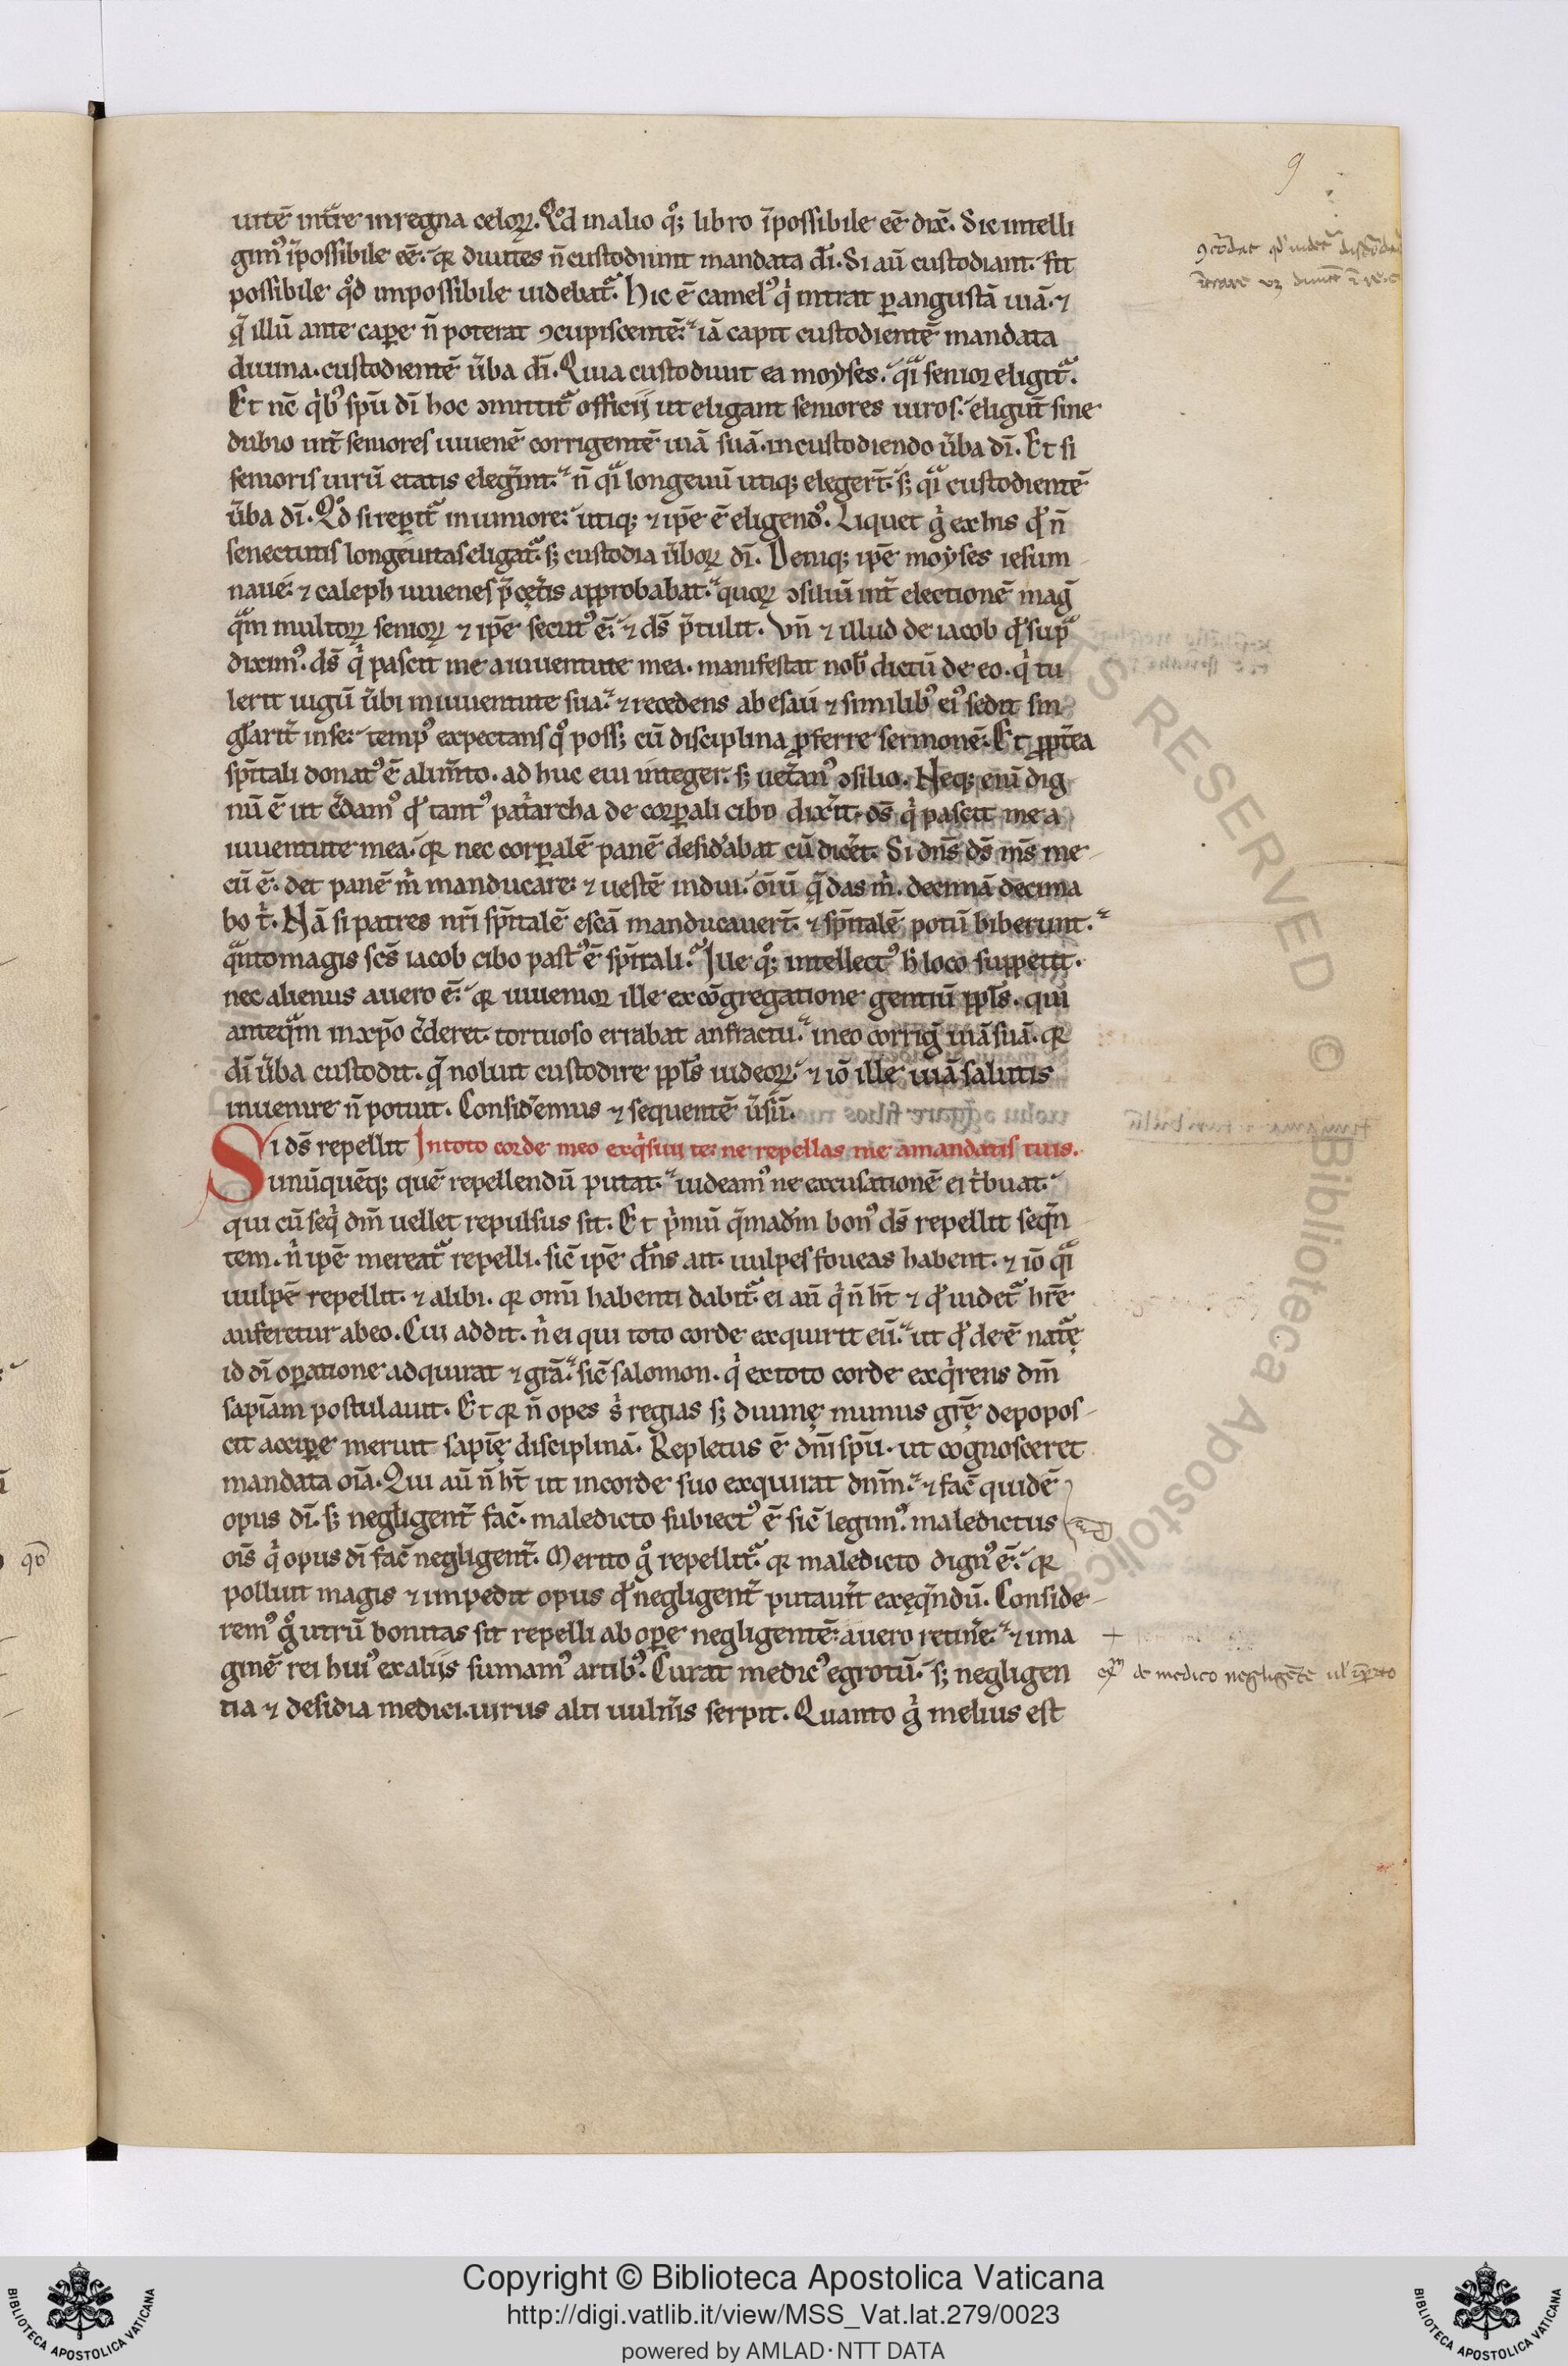 9
uitē int̃re in regna celoꝝ. Qđ in alio qͦꝫ libro ĩpossibile eē dix̄. Sic intelli
gimꝰ ĩpossibile eē. qꝛ diuites n̄ custodiunt mandata dī. Si aū custodiant. fit
possibile qͦd impossibile uidebatᷓ. Hic ē camelꝰ qͥ intrat ꝑ angustā uiā. ⁊
q̄ illū ante caꝑe n̄ poterat ꝯcupiscentē. iā capit custodientē mandata
diuina. custodientē ũba dī. Quia custodiuit ea moyses. qᷓi senior eligitᷓ.
Et nc̄ qͥbꝰ spū dī hoc ꝯmittitᷓ officij ut eligant seniores uiros. eligūt sine
dubio int̃ seniores iuuenē corrigentē uiā suā. in custodiendo ũba dī. Et si
senioris uirū etatis eleg̃int. n̄ qᷓi longeuū utiqꝫ elegert̄. sꝫ qᷓi custodientē
ũba dī. Qđ si reꝑitᷓ in iuniore. utiqꝫ ⁊ ip̄e ē eligendꝰ. Liquet gͥ ex his qđ n̄
senectutis longeuitas eligatᷓ. sꝫ custodia ũboꝝ dī. Deniqꝫ ip̄e moyses iesum
naue. ⁊ caleph iuuenes p̃cęt̃is approbabat. quoꝝ ꝯsiliū int̃ electionē mag̃
qᷓm multoꝝ senioꝝ ⁊ ip̄e secutꝰ ē. ⁊ ds̄ p̃tulit. Vn̄ ⁊ illud de iacob qđ supᷓ
diximꝰ. ds̄ qͥ pascit me a iuuentute mea. manifestat nob̄ dictū de eo. qͥ tu
lerit iugū ũbi in iuuentute sua. ⁊ recedens ab esau ⁊ similibꝰ eiꝰ sedit sin
gl̃arit̃ in se. tempꝰ expectans qͦ possꝫ cū disciplina ꝓferre sermonē. Et ꝓpt̃ea
sp̄itali donatꝰ ē alim̃to. ad huc eui integer. sꝫ uet̃anꝰ ꝯsilio. Neqꝫ eni dig
nū ē ut c̃damꝰ qđ tantꝰ pat̃archa de corꝑali cibo dix̃it. ds̄ qͥ pascit me a
iuuentute mea. qꝛ nec corꝑalē panē desid̃abat cū dic̃et. Si dn̄s ds̄ ms̄ me
cū ē. det panē m̃ manducare. ⁊ uestē indui. oīū q̄ das m̃. decimā decima
bo t̃. Nā si patres nr̄i sp̄italē escā manducauert̄. ⁊ sp̄italē potū biberunt.
qᷓnto magis scs̄ iacob cibo pastꝰ ē sp̄itali. Ille qͦꝫ intellectꝰ h̄ loco suppetit.
nec alienus a uero ē. qꝛ iuuenior ille ex cōgregatione gentiū ppl̄s. qui
anteqᷓm in xp̄o c̃deret. tortuoso errabat anfractu. in eo corrig̃ uiā suā. qꝛ
dī ũba custodit. q̄ noluit custodire ppl̄s iudeoꝝ. ⁊ iō ille uiā salutis
inuenire n̄ potuit. Consid̃emus ⁊ sequentē ũsū.
Vi ds̄ repellit In toto corde meo exqͥsiui te. ne repellas me a mandatis tuis.
Si unūquēqꝫ quē repellendū putat. uideamꝰ ne excusationē ei t̃buat.
qui cū seqͥ dm̄ uellet repulsus sit. Et p̃mū q̄madm̄ bonꝰ ds̄ repellit seq̄n
tem. n̄ ip̄e mereatᷓ repelli. sic̄ ip̄e dn̄s ait. uulpes foueas habent. ⁊ iō qᷓi
uulpē repellit. ⁊ alibi. qꝛ omī habenti dabitᷓ. ei aū qͥ n̄ h̄t ⁊ qđ uidetᷓ hr̄e
auferetur ab eo. Cui addit. n̄ ei qui toto corde exquirit eū. ut qđ de ē natᷓę
id dī oꝑatione adquirat ⁊ gr̄a. sic̄ salomon. qͥ ex toto corde exqͥrens dm̄
sapīam postulauit. Et qꝛ n̄ opes s̃ regias sꝫ diuinę munus gr̄ę depopos
cit acciꝑe meruit sapīę disciplinā. Repletus ē dm̄i spū. ut cognosceret
mandata oīa. Qui aū n̄ h̄t ut in corde suo exquirat dnm̄. ⁊ fac̄ quidē
opus dī. sꝫ negligent̃ fac̄. maledicto subiectꝰ ē sic̄ legimꝰ. maledictus
oīs qͥ opus dī fac̄ negligent̃. Merito gͦ repellitᷓ. qꝛ maledicto dignꝰ ē. qꝛ
polluit magis ⁊ impedit opus qđ negligent̃ putauit̃ exęq̄ndū. Conside
remꝰ gͦ utrū bonitas sit repelli ab oꝑe negligentē. a uero retin̄e. ⁊ ima
ginē rei huiꝰ ex alijs sumamꝰ artibꝰ. Curat medicꝰ egrotū. sꝫ negligen
tia ⁊ desidia medici. uirus alti uuln̄is serpit. Quanto gͥ melius est
+
exᵐ de medico negligēte ul' īꝑito
qđ
Copyright © Biblioteca Apostolica Vaticana
http://digi.vatlib.it/view/MSS_Vat.lat.279/0023
powered by AMLAD·NTT DATA
BIBLIOTECA APOSTOLICA VATICANA
BIBLIOTECA APOSTOLICA VATICANA